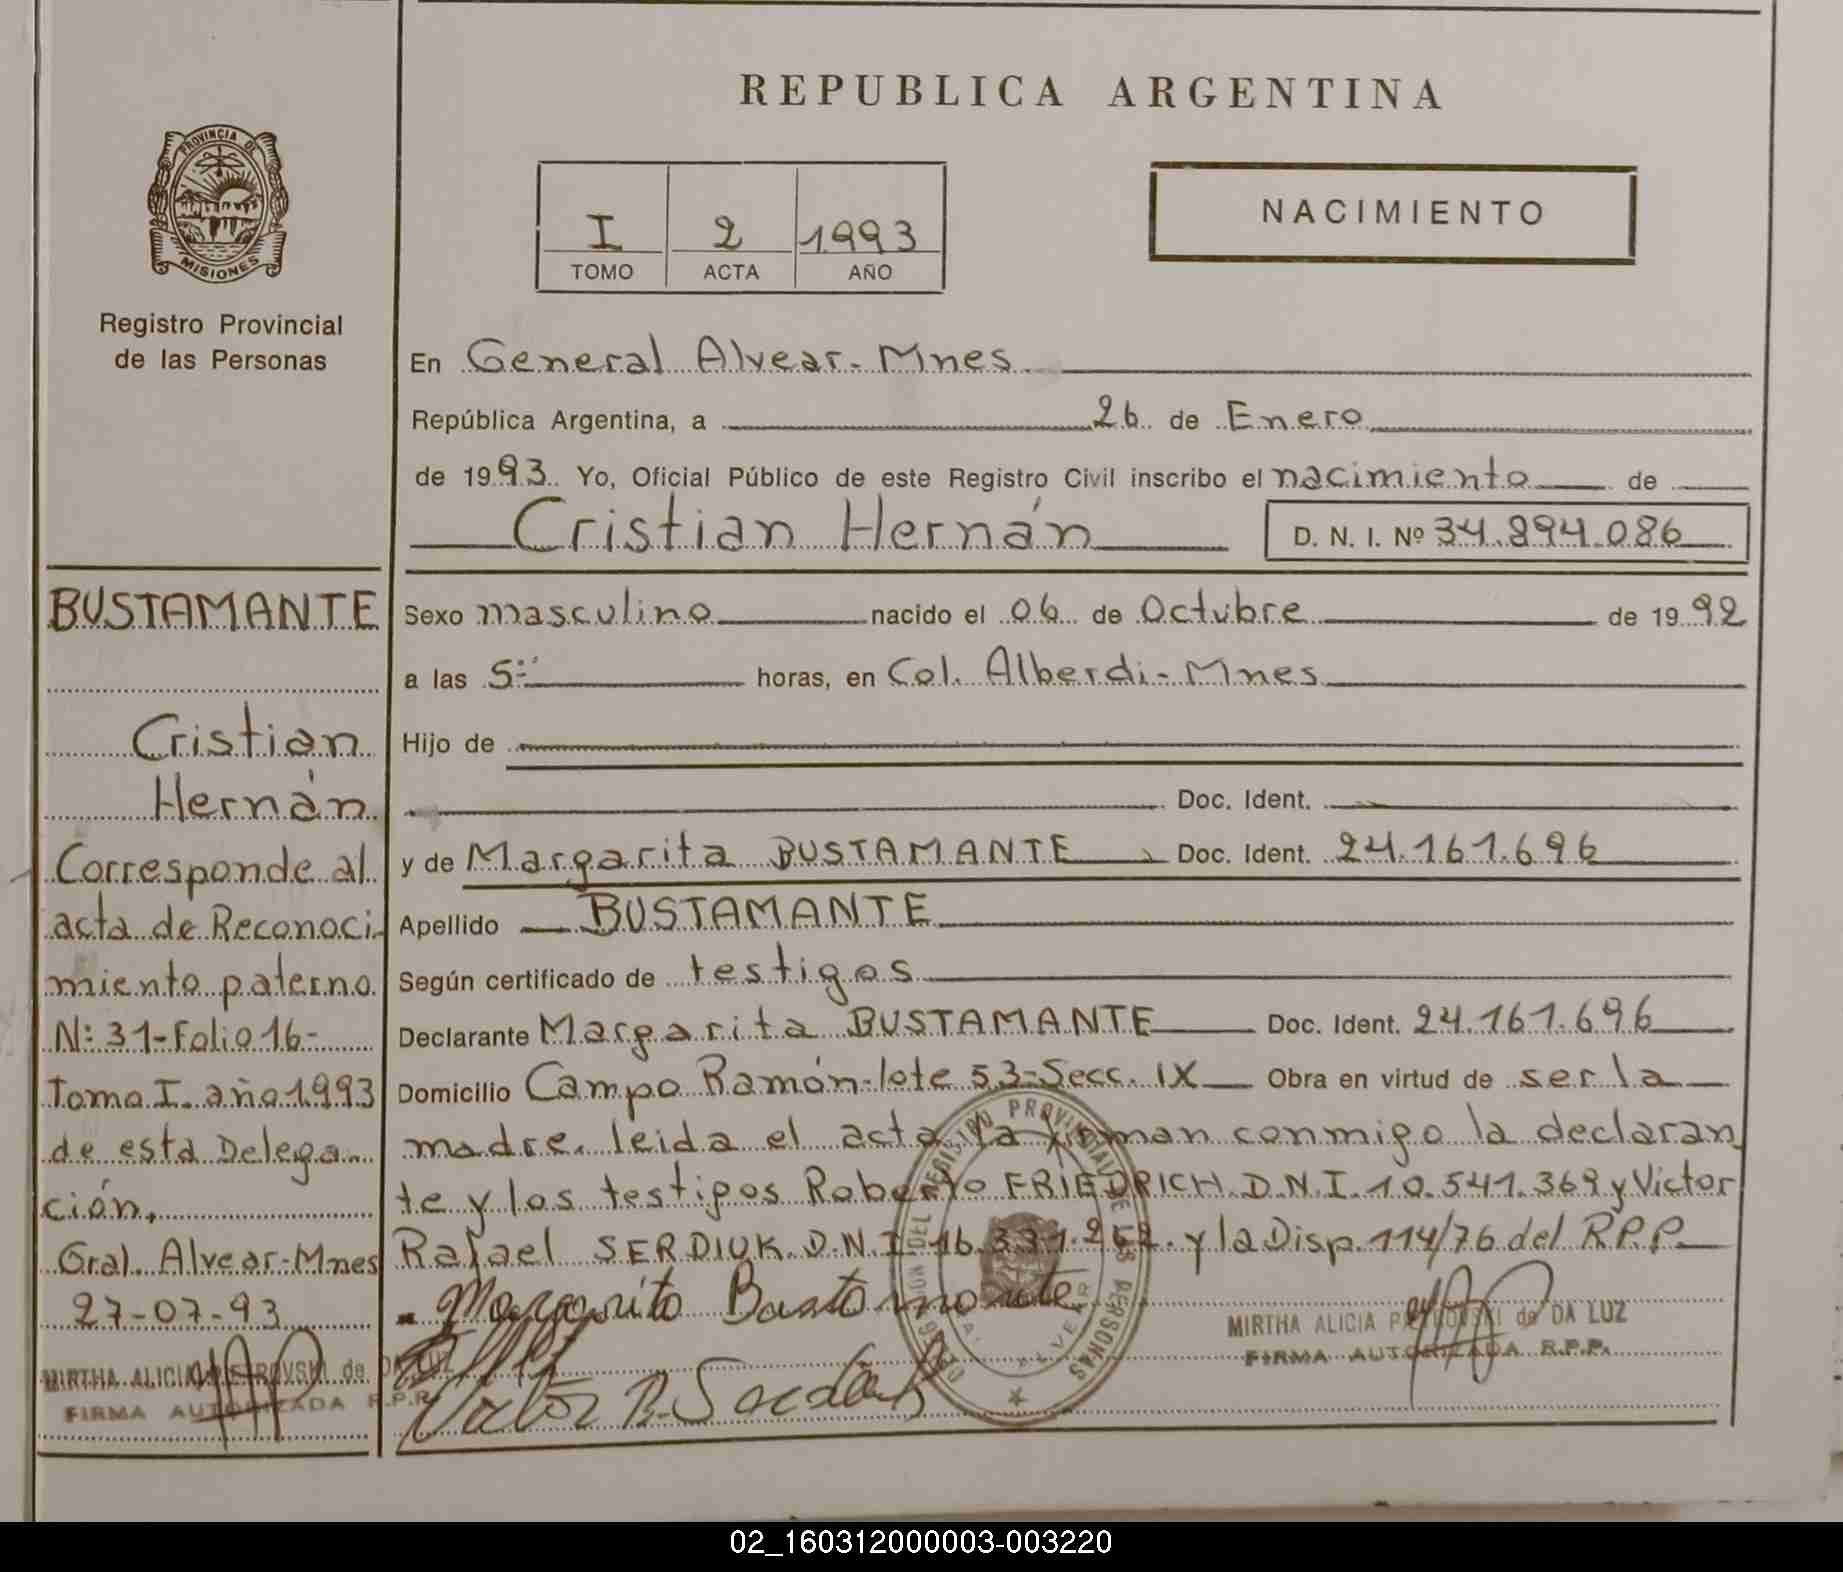 REPUBLICA ARGENTINA
PROVINCIA DE
MISIONES
Registro Provincial
de las Personas
I 2 1993
TOMO ACTA AÑO
NACIMIENTO
En General Alvear-Mnes
República Argentina, a 26 de Enero
de 1993. Yo, Oficial Público de este Registro Civil inscribo el nacimiento de
Cristian Hernán D. N. I. Nº 34.894.086
Sexo masculino nacido el 06 de Octubre de 1992
a las 5 horas, en Col. Alberdi-Mnes
Hijo de
Doc. Ident.
y de Margarita BUSTAMANTE Doc. Ident. 24.161.696
Apellido BUSTAMANTE
Según certificado de testigos
Declarante Margarita BUSTAMANTE Doc. Ident. 24.161.696
Domicilio Campo Ramón-lote 53-Secc. IX Obra en virtud de ser la
madre. leida el acta, la firman conmigo la declaran
te y los testigos Roberto FRIEDRICH.D.N.I.10.541.369 y Victor
Rafael SERDIUK.D.N.I 16. y la Disp.114/76 del R.P.P.
Margarita Bustamante
MIRTHA ALICIA PETROVSKI de DA LUZ
FIRMA AUTORIZADA R.P.P.
BUSTAMANTE
Cristian
Hernán
Corresponde al
acta de Reconoci-
miento paterno
N: 31-Folio 16-
Tomo I. año 1993
de esta Delega-
ción.
Gral. Alvear-Mnes
27-07-93
MIRTHA ALICIA PETROVSKI de DA LUZ
FIRMA AUTORIZADA R.P.P.
DELEGACIÓN DEL REGISTRO PROVINCIAL DE LAS PERSONAS
02_160312000003-003220